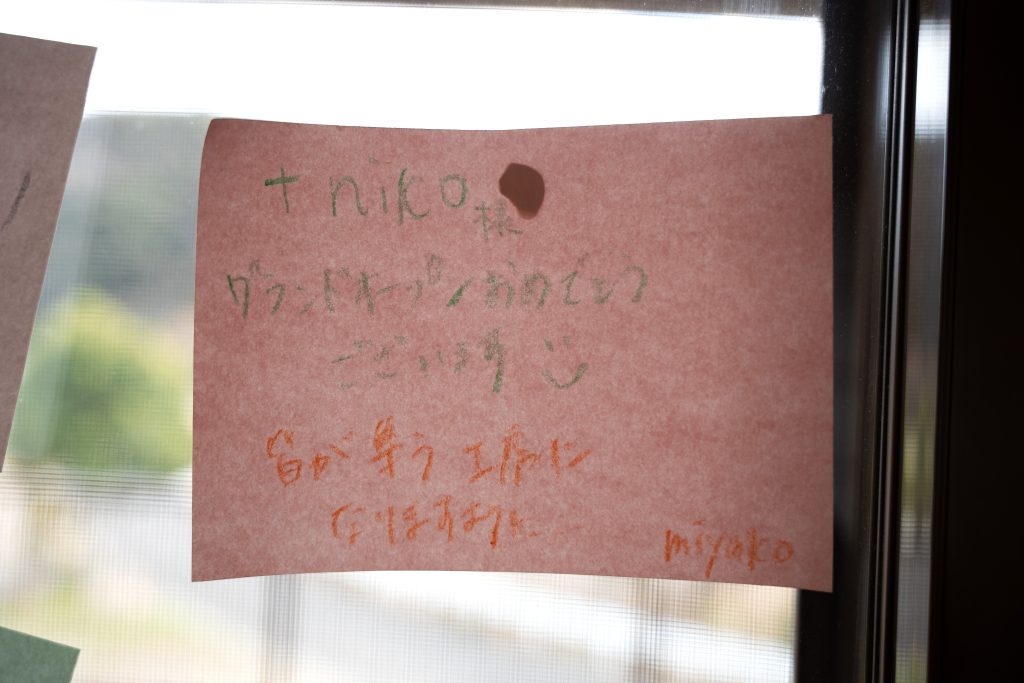 + niko 様
グランドオープンおめでとう
ございます
皆が集う工房に
なりますように…
miyako